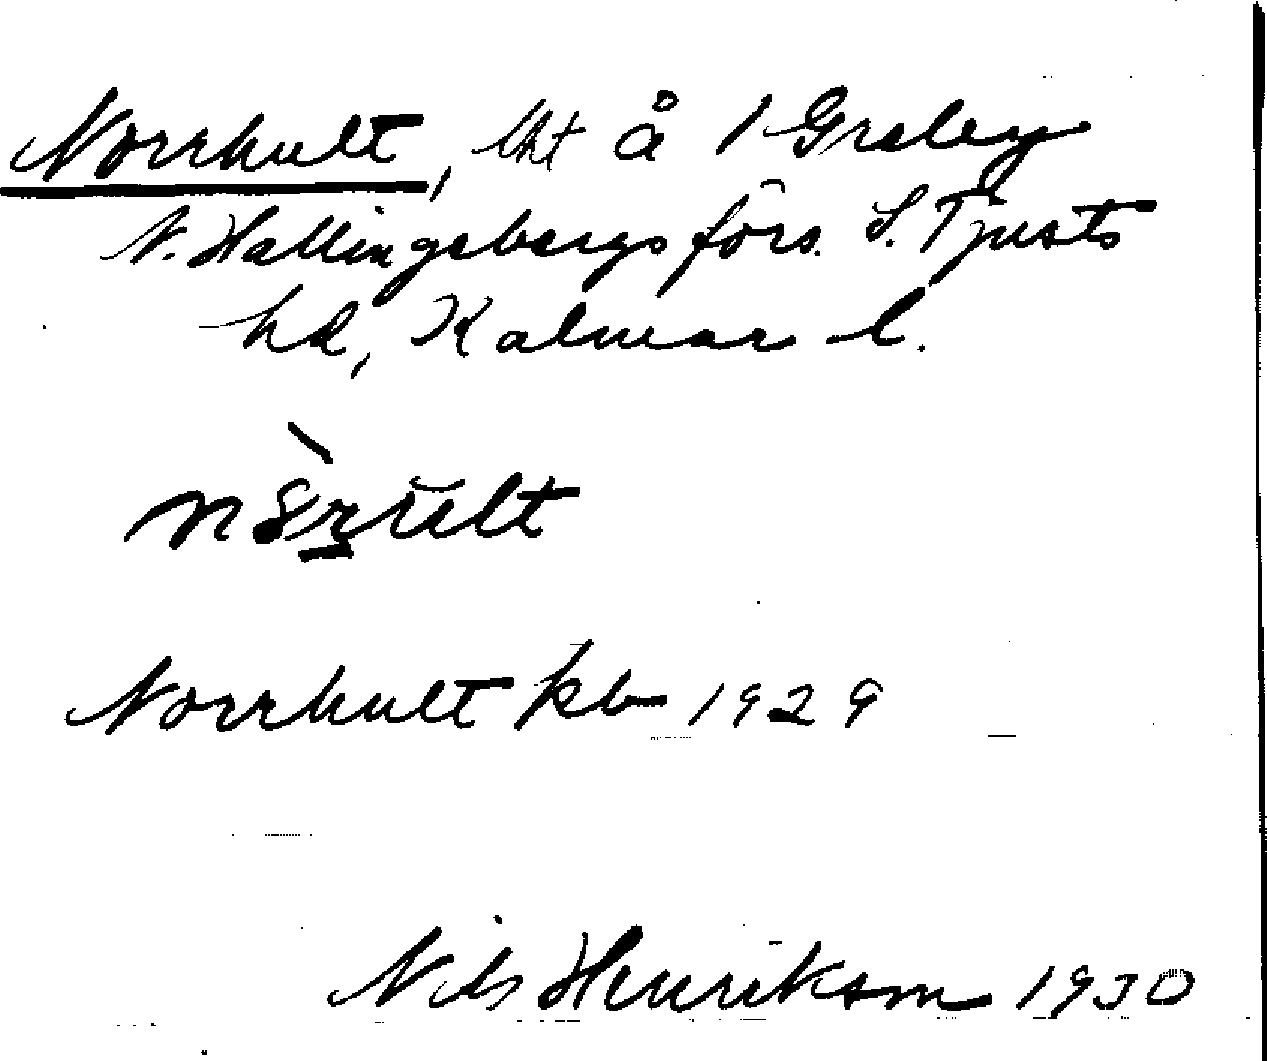 Norrhult, lht å 1 Greby
V. Hallingebergs förs. S. Tjusts
hd, Kalmar l.
Norrhult kb 1929
Nils Henrikson 1930